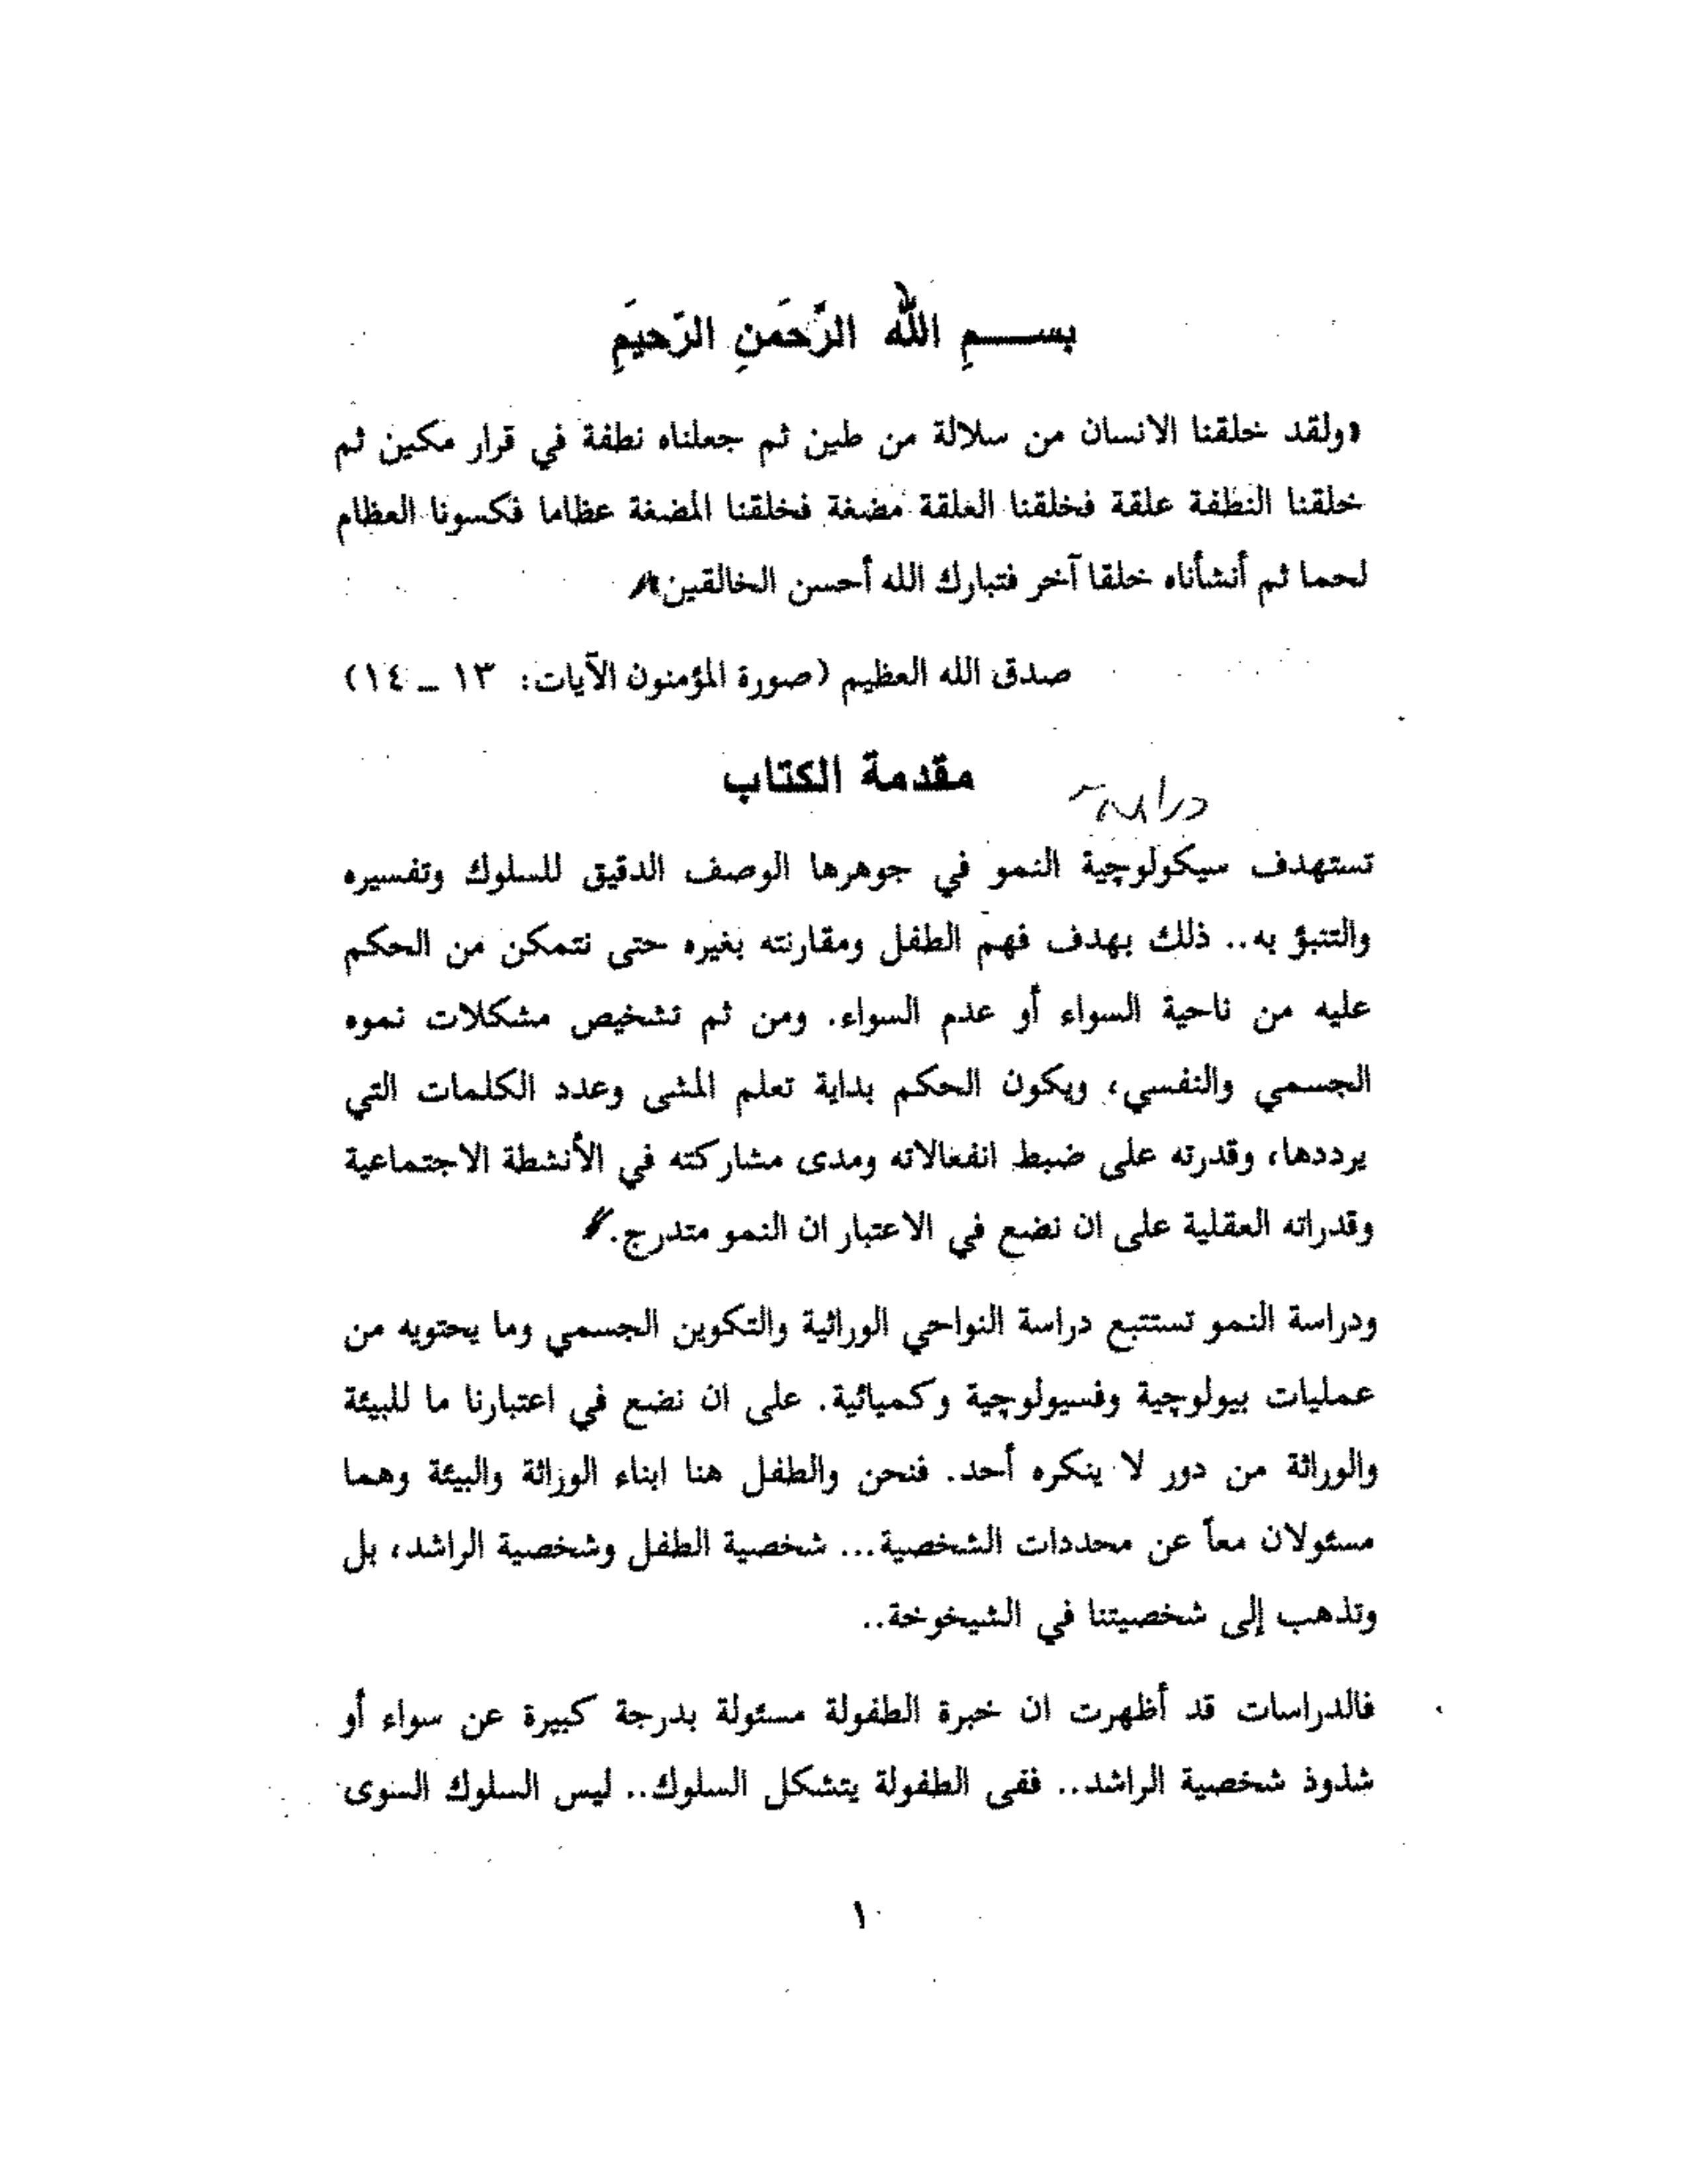 بســـمِ اللّٰه الرَّحمَنِ الرّحيَمِ
«ولقد خلقنا الانسان من سلالة من طين ثم جعلناه نطفة في قرار مكين ثم
خلقنا النطفة علقة فخلقنا العلقة مضغة فخلقنا المضغة عظاما فكسونا العظام
لحما ثم أنشأناه خلقا آخر فتبارك الله أحسن الخالقين»
صدق الله العظيم (صورة المؤمنون الآيات: ١٣ ــ ١٤)
مقدمة الكتاب
دراسة
تستهدف سيكولوچية النمو في جوهرها الوصف الدقيق للسلوك وتفسيره
والتنبؤ به.. ذلك بهدف فهم الطفل ومقارنته بغيره حتى نتمكن من الحكم
عليه من ناحية السواء أو عدم السواء. ومن ثم تشخيص مشكلات نموه
الجسمي والنفسي، ويكون الحكم بداية تعلم المشى وعدد الكلمات التي
يرددها، وقدرته على ضبط انفعالاته ومدى مشاركته في الأنشطة الاجتماعية
وقدراته العقلية على ان نضع في الاعتبار ان النمو متدرج.
ودراسة النمو تستتبع دراسة النواحي الوراثية والتكوين الجسمي وما يحتويه من
عمليات بيولوچية وفسيولوچية وكميائية. على ان نضع في اعتبارنا ما للبيئة
والوراثة من دور لا ينكره أحد. فنحن والطفل هنا ابناء الوراثة والبيئة وهما
مسئولان معاً عن محددات الشخصية... شخصية الطفل وشخصية الراشد، بل
وتذهب إلى شخصيتنا في الشيخوخة..
فالدراسات قد أظهرت ان خبرة الطفولة مسئولة بدرجة كبيرة عن سواء أو
شذوذ شخصية الراشد.. ففى الطفولة يتشكل السلوك.. ليس السلوك السوى
١